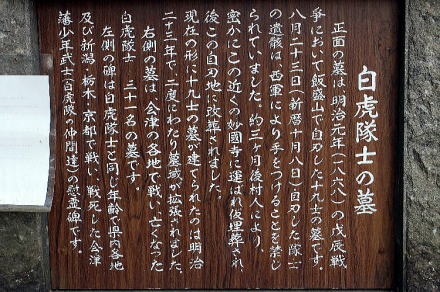 白虎隊士の墓
正面の墓は明治元年(一八六八)の戊辰戦
争において飯盛山で自刃した十九士の墓です。
八月二十三日(新暦十月八日)自刃した隊士
の遺骸は、西軍により手をつけることを禁じ
られていました。約三ヶ月後村人により、
密かにこの近くの妙國寺に運ばれ仮埋葬され、
後この自刃地に改葬されました。
現在の形に十九士の墓が建てられたのは明治
二十三年で、二度にわたり墓域が拡張されました。
右側の墓は、会津の各地で戦い、亡くなった
白虎隊士 三十一名の墓です。
左側の碑は白虎隊士と同じ年齢で県内各地
及び新潟・栃木・京都で戦い、戦死した会津
藩少年武士(白虎隊の仲間達)の慰霊碑です。